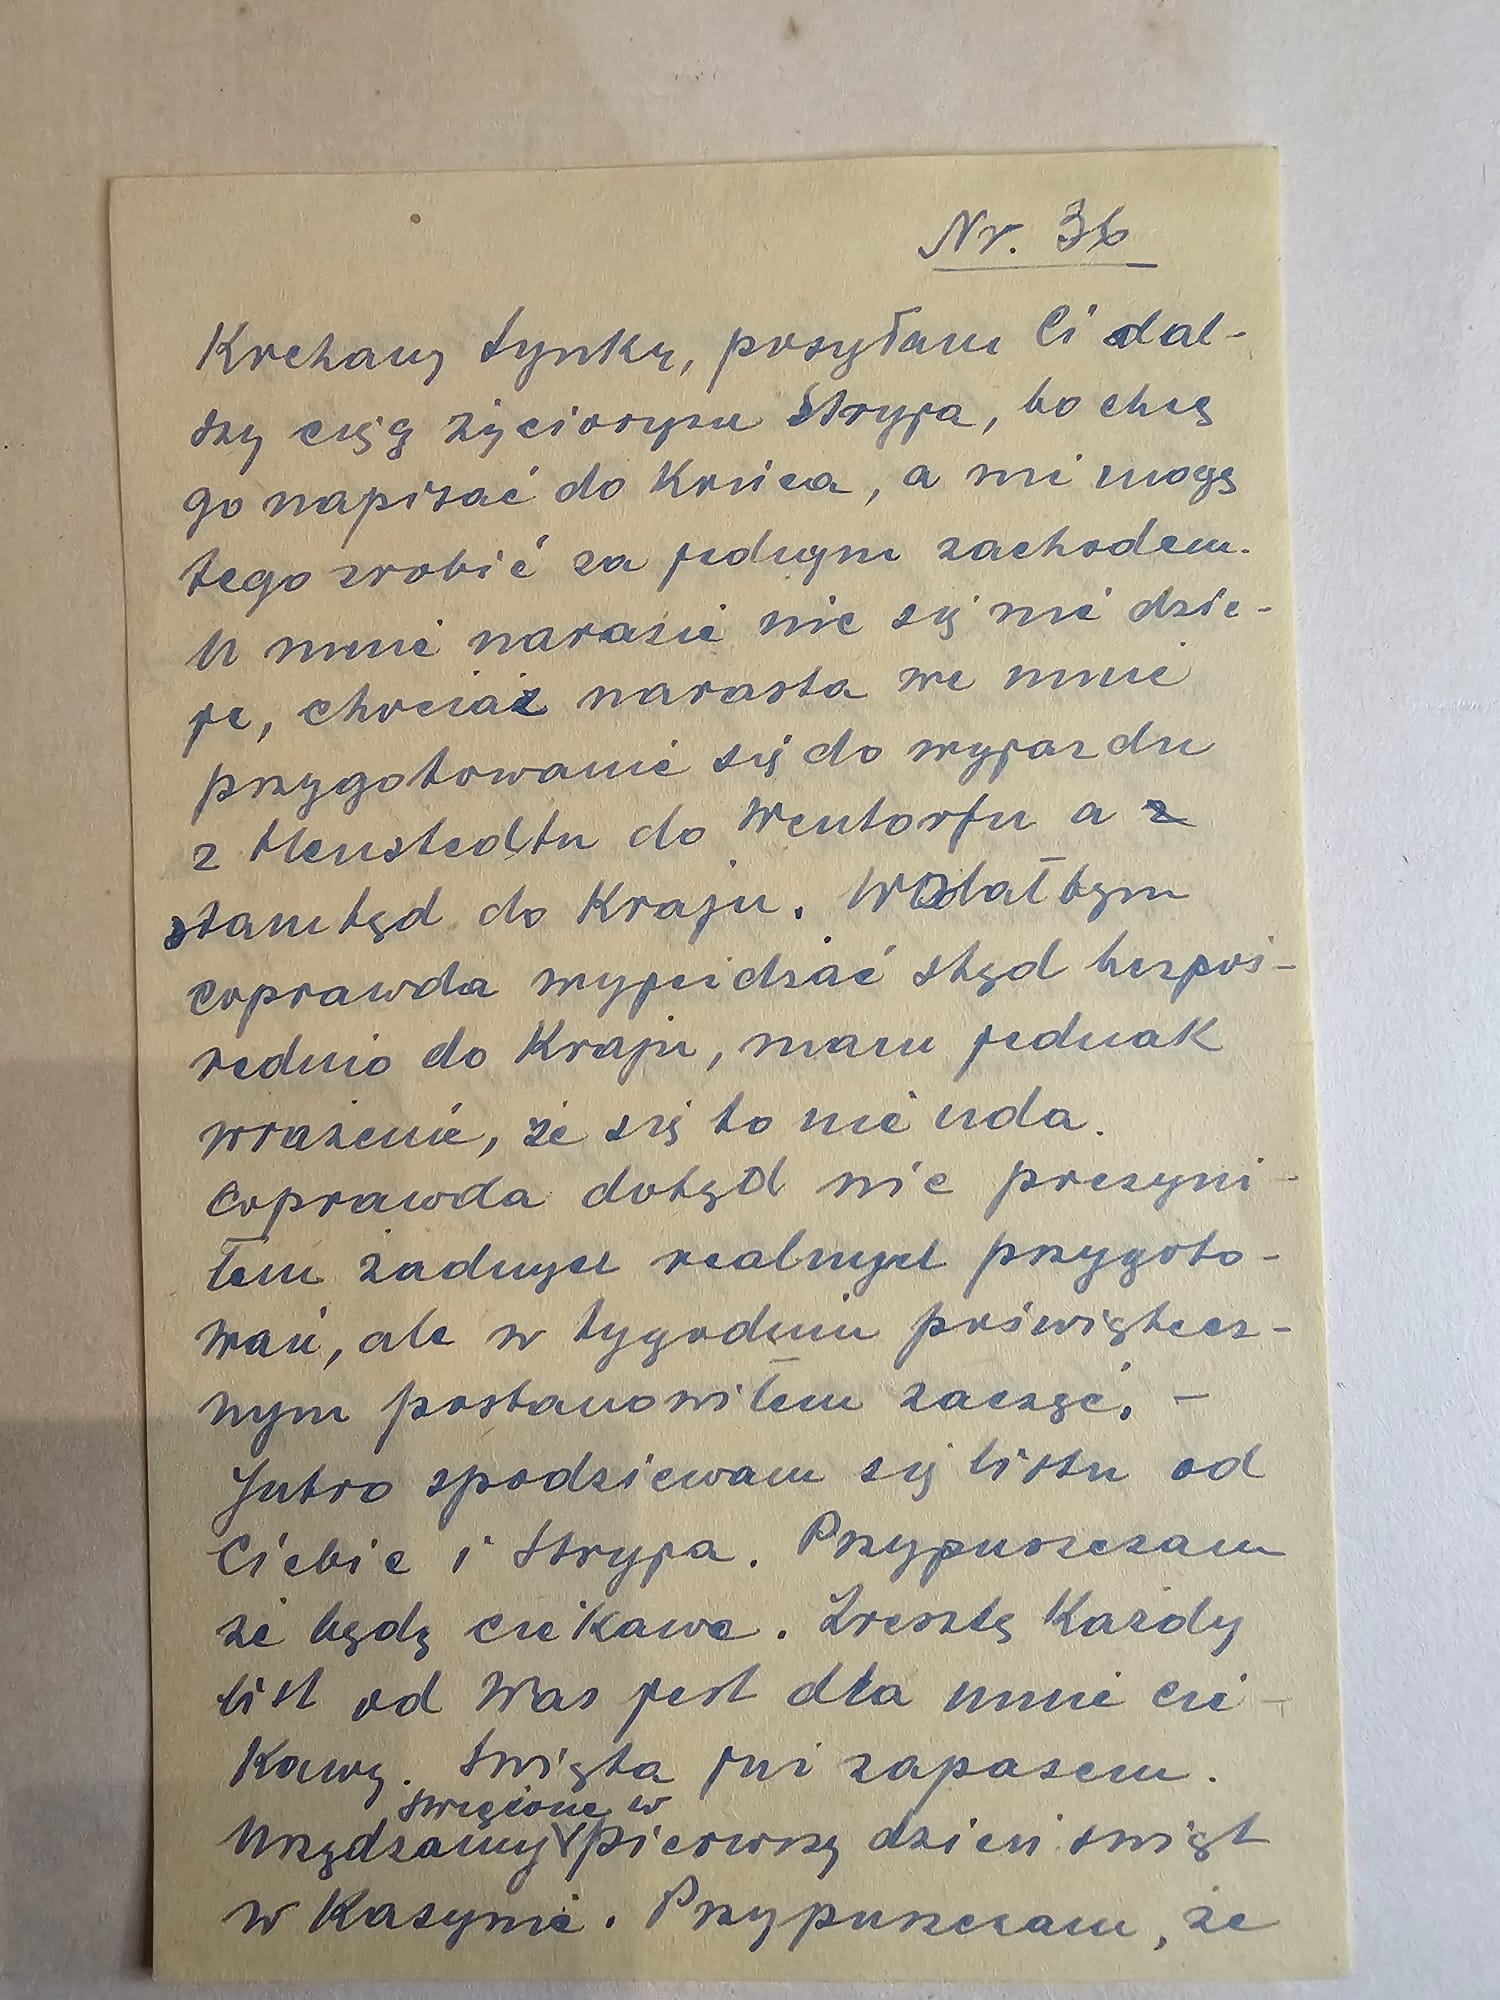 Nr. 36
Kochany Synku, posyłam Ci dal-
szy ciąg życiorysu Stryja, bo chcę
go napisać do końca, a nie mogę
tego zrobić za jednym zachodem.
U mnie narazie nic się nie dzie-
je, chociaż narasta we mnie
przygotowanie się do wyjazdu
z Heustedtu do Wentorfu a z
stamtąd do Kraju. Wolałbym
coprawda wyjeżdżać stąd bezpoś-
rednio do Kraju, mam jednak
wrażenie, że się to nie uda.
Coprawda dotąd nie poczyni-
łem żadnych realnych przygoto-
wań, ale w tygodniu poświątecz-
nym postanowiłem zacząć. -
Jutro spodziewam się listu od
Ciebie i Stryja. Przypuszczam
że będą ciekawe. Zresztą każdy
list od Was jest dla mnie cie-
kawy. Święta już zapasem.
święcone w
Urządzamy pierwszy dzień świąt
w Kasynie. Przypuszczam, że